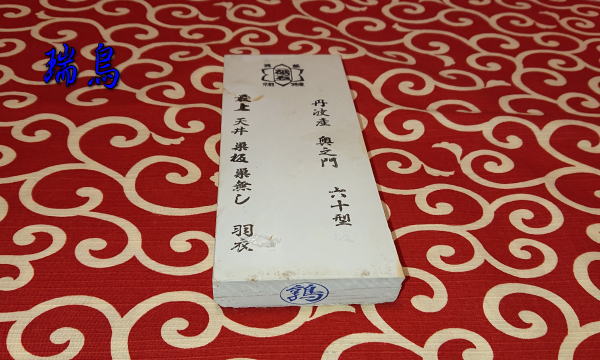 瑞鳥
丹波産 奥之門 六十型
最上 天井 巣板 巣無し 羽衣
鶉